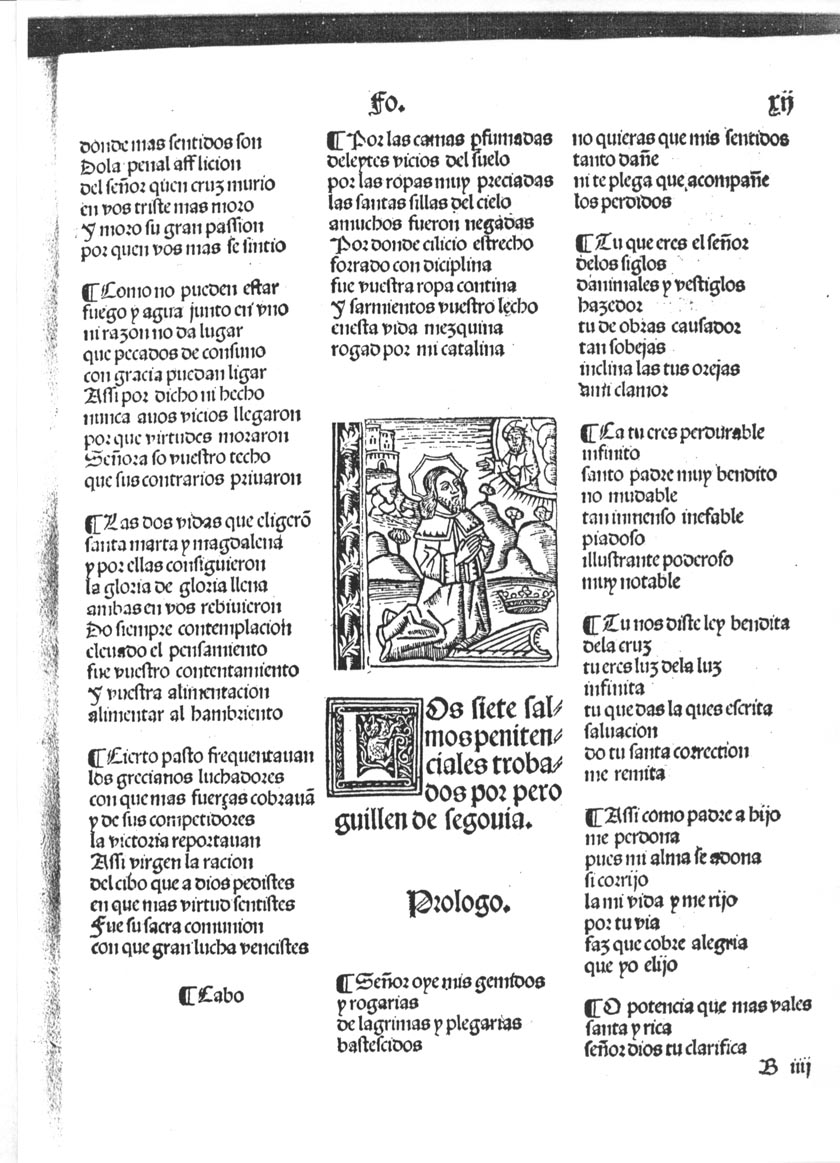 Fo.
xij
donde mas sentidos son
Dola penal afflicion
del señor quen cruz murio
en vos triste mas moro
Y moro su gran passion
por quen vos mas se sintio
¶ Como no pueden estar
fuego y agua junto en vno
ni razon no da lugar
que pecados de consuno
con gracia puedan ligar
Assi por dicho ni hecho
nunca auos vicios llegaron
por que virtudes moraron
Señora so vuestro techo
que sus contrarios priuaron
¶ Las dos vidas que eligerō
santa marta y magdalena
y por ellas consiguieron
la gloria de gloria llena
ambas en vos rebiuieron
Do siempre contemplacion
eleuado el pensamiento
fue vuestro contentamiento
Y vuestra alimentacion
alimentar al hambriento
¶ Cierto pasto frequentauan
los grecianos luchadores
con que mas fuerças cobrauā
y de sus competidores
la victoria reportauan
Assi virgen la racion
del cibo que a dios pedistes
en que mas virtud sentistes
Fue su sacra comunion
con que gran lucha vencistes
¶ Cabo
¶ Por las camas pfumadas
deleytes vicios del suelo
por las ropas muy preciadas
las santas sillas del cielo
amuchos fueron negadas
Por donde cilicio estrecho
forrado con diciplina
fue vuestra ropa contina
Y sarmientos vuestro lecho
enesta vida mezquina
rogad por mi catalina
LOs siete sal/
mos peniten/
ciales troba/
dos por pero
guillen de segouia.
Prologo.
¶ Señor oye mis gemidos
y rogarias
de lagrimas y plegarias
bastescidos
no quieras que mis sentidos
tanto dañe
ni te plega que acompañe
los perdidos
¶ Tu que eres el señor
delos siglos
daniniales y vestiglos
hazedor
tu de obras causador
tan sobejas
inclina las tus orejas
ami clamor
¶ Ca tu eres perdurable
infinito
santo padre muy bendito
no mudable
tan inmenso inefable
piadoso
illustrante poderoso
muy notable
¶ Tu nos diste ley bendita
dela cruz
tu eres luz dela luz
infinita
tu que das la ques escrita
saluacion
do tu santa correction
me remita
¶ Assi como padre a hijo
me perdona
pues mi alma se adona
si corrijo
la mi vida y me rijo
por tu via
faz que cobre alegria
que yo elijo
¶ O potencia que mas vales
santa y rica
señor dios tu clarifica
B iiij